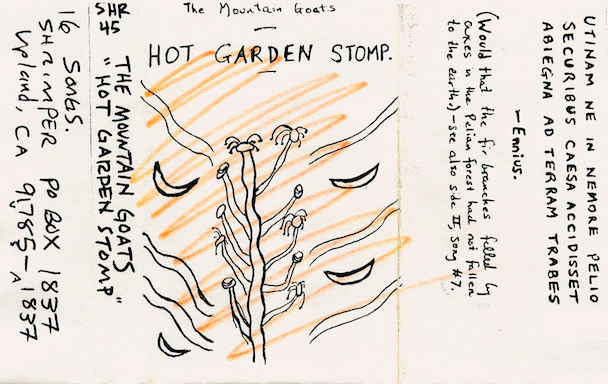 SHR
45
THE MOUNTAIN GOATS
"HOT GARDEN STOMP"
16 Songs.
SHRIMPER PO BOX 1837
Upland, CA 91785-1837
The Mountain Goats
HOT GARDEN STOMP.
UTINAM NE IN NEMORE PELIO
SECURIBUS CAESA ACCIDISSET
ABIEGNA AD TERRAM TRABES
—Ennius.
(Would that the fir branches felled by
axes in the Pelian forest had not fallen
to the earth)—see also side II, song #7.